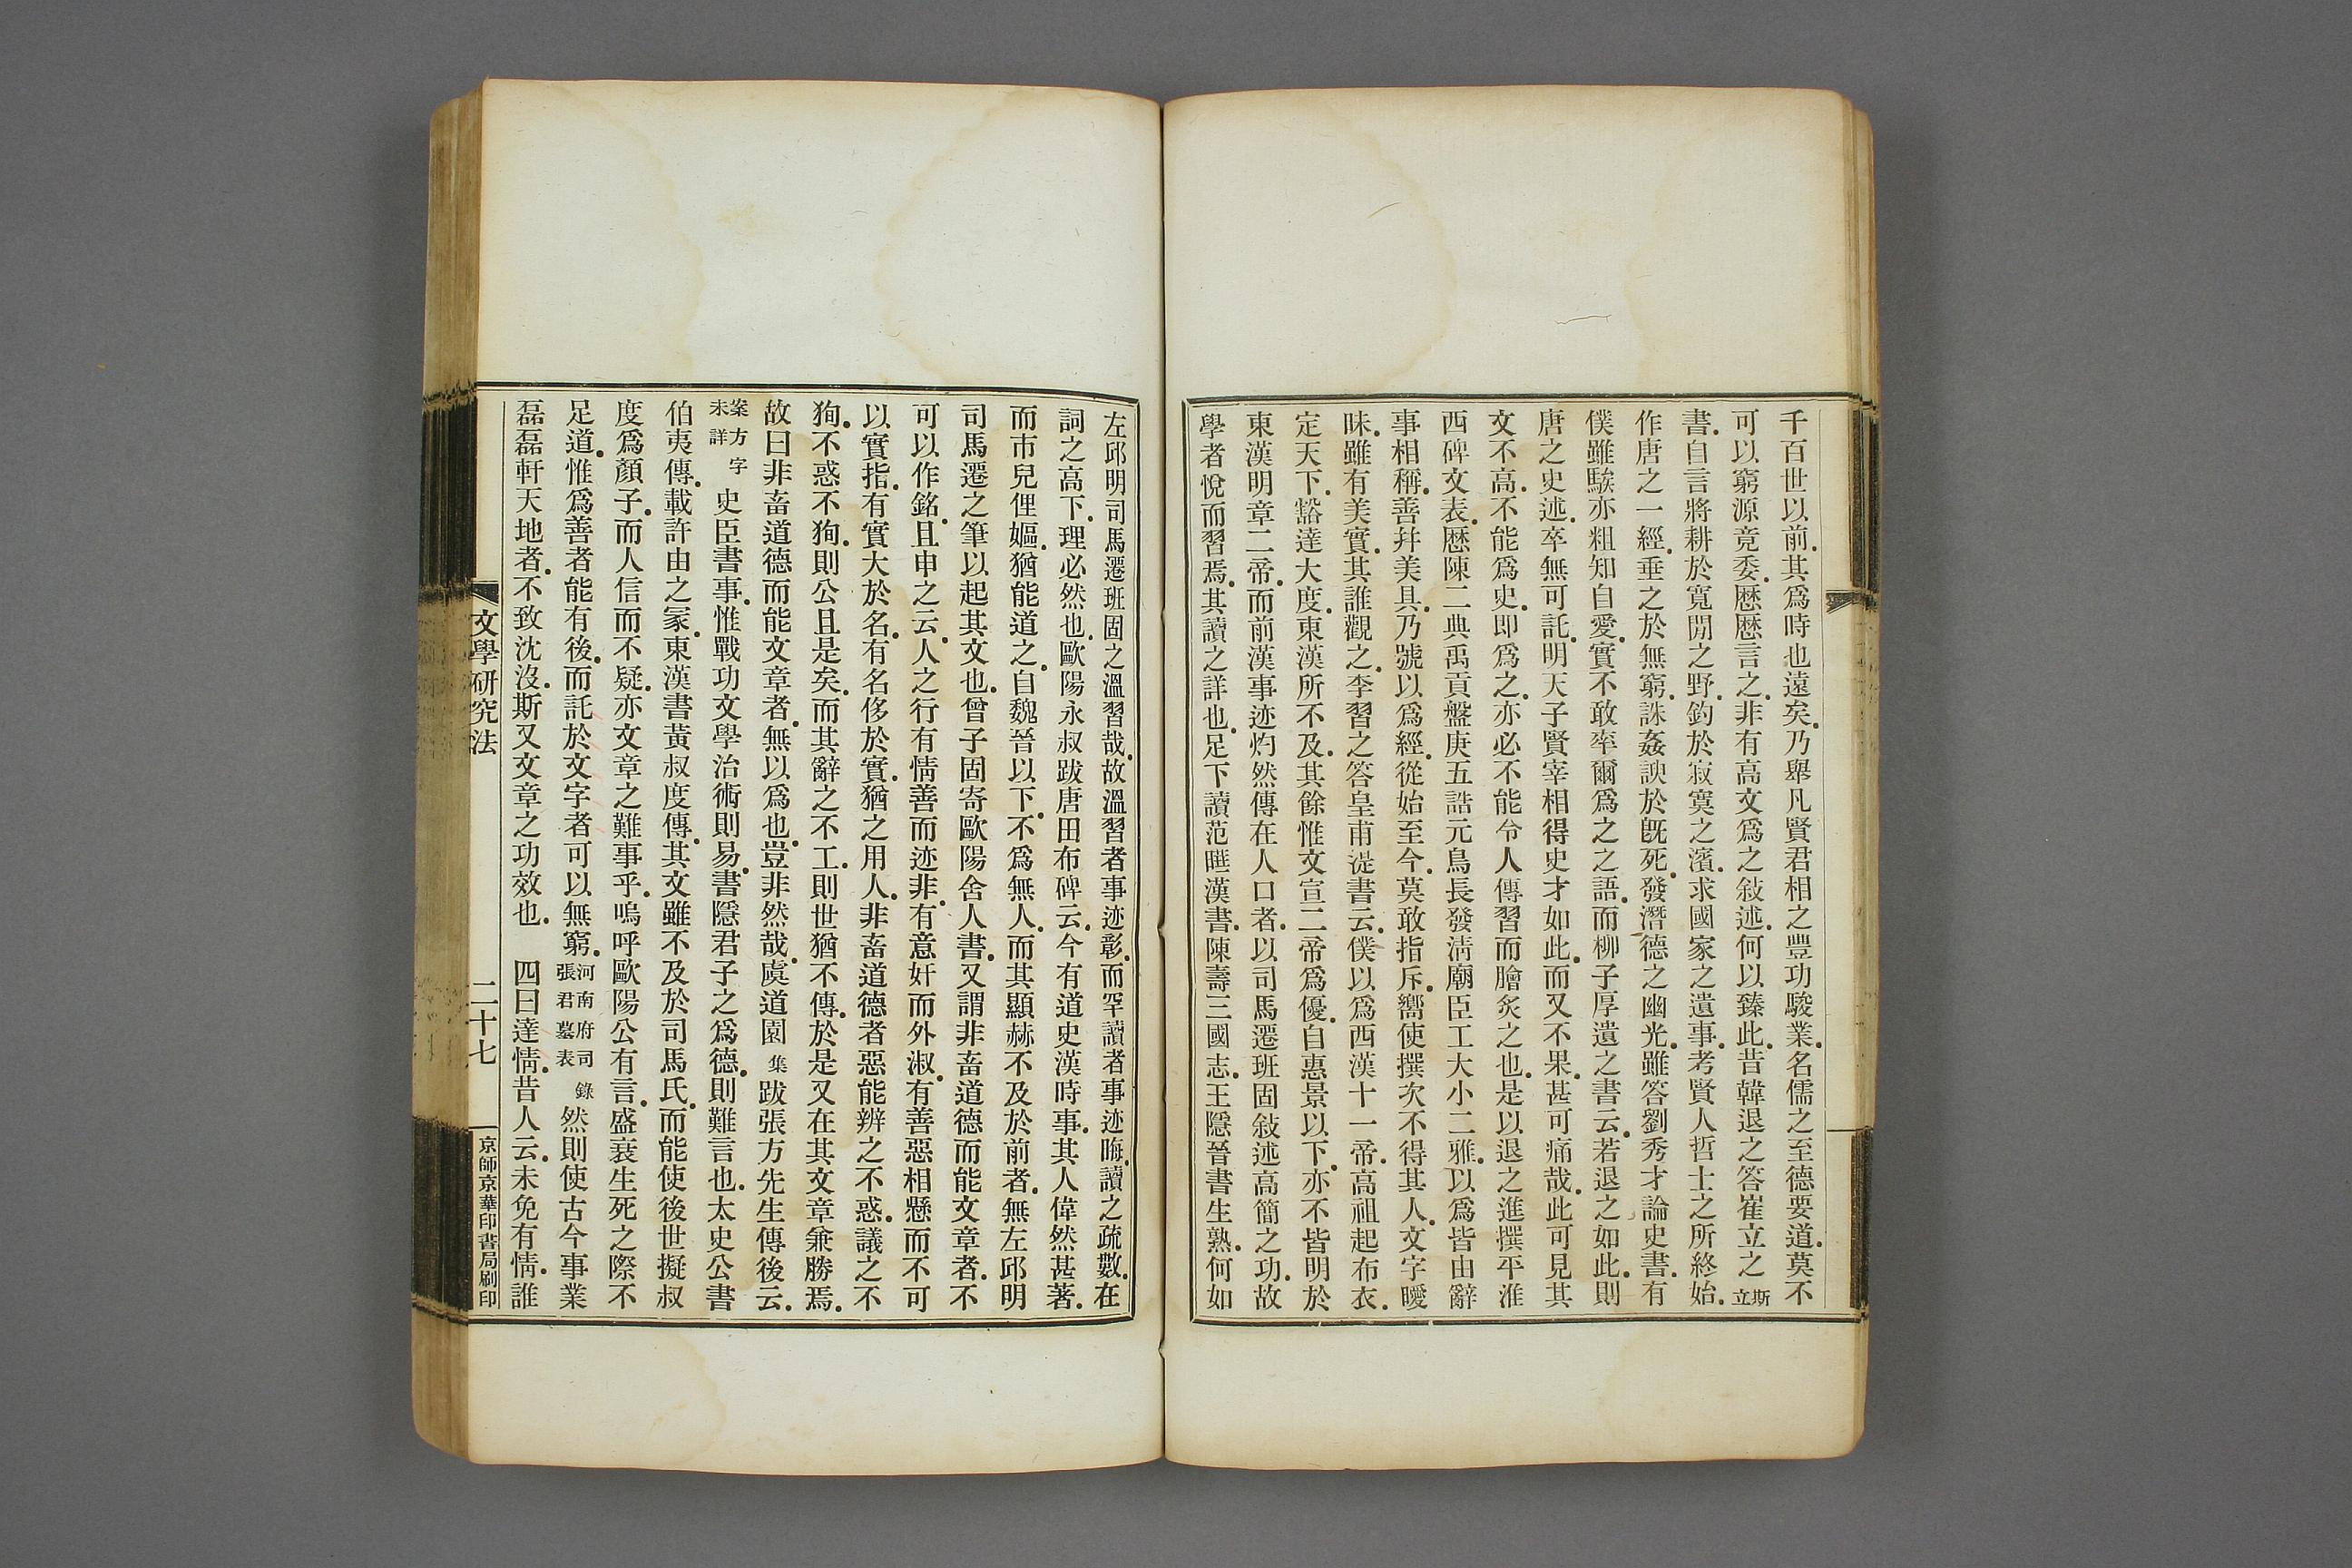 千百世以前.其爲時也遠矣.乃舉凡賢君相之豐功駿業.名儒之至德要道.莫不
可以窮源竟委.歷歷言之.非有高文爲之敍述.何以臻此.昔韓退之答崔立之斯立
書.自言將耕於寬閒之野.釣於寂寞之濱.求國家之遺事.考賢人哲士之所終始.
作唐之一經.垂之於無窮.誅姦諛於旣死.發潛德之幽光.雖答劉秀才論史書.有
僕雖騃亦粗知自愛.實不敢率爾爲之之語.而柳子厚遺之書云.若退之如此.則
唐之史述.卒無可託.明天子賢宰相得史才如此.而又不果.甚可痛哉.此可見其
文不高.不能爲史.即爲之.亦必不能令人傳習而膾炙之也.是以退之進撰平淮
西碑文表.歷陳二典禹貢盤庚五誥元鳥長發淸廟臣工大小二雅.以爲皆由辭
事相稱.善幷美具.乃號以爲經.從始至今.莫敢指斥.嚮使撰次不得其人.文字曖
昧.雖有美實.其誰觀之.李習之答皇甫湜書云.僕以爲西漢十一帝.高祖起布衣.
定天下.豁達大度.東漢所不及.其餘惟文宣二帝爲優.自惠景以下.亦不皆明於
東漢明章二帝.而前漢事迹灼然傳在人口者.以司馬遷班固敍述高簡之功.故
學者悅而習焉.其讀之詳也.足下讀范曄漢書.陳壽三國志.王隱晉書生熟.何如
左邱明司馬遷班固之溫習哉.故溫習者事迹彰.而罕讀者事迹晦.讀之疏數.在
詞之高下.理必然也.歐陽永叔跋唐田布碑云.今有道史漢時事.其人偉然甚著.
而市兒俚嫗.猶能道之.自魏晉以下.不爲無人.而其顯赫不及於前者.無左邱明
司馬遷之筆以起其文也.曾子固寄歐陽舍人書.又謂非畜道德而能文章者.不
可以作銘.且申之云.人之行有情善而迹非.有意奸而外淑.有善惡相懸而不可
以實指.有實大於名.有名侈於實.猶之用人.非畜道德者惡能辨之不惑.議之不
狥.不惑不狥.則公且是矣.而其辭之不工.則世猶不傳.於是又在其文章兼勝焉.
故曰非畜道德而能文章者.無以爲也.豈非然哉.虞道園集跋張方先生傳後云.
案方字未詳史臣書事.惟戰功文學治術則易.書隱君子之爲德.則難言也.太史公書
伯夷傳.載許由之冢.東漢書黃叔度傳.其文雖不及於司馬氏.而能使後世擬叔
度爲顏子.而人信而不疑.亦文章之難事乎.嗚呼歐陽公有言.盛衰生死之際不
足道.惟爲善者能有後.而託於文字者可以無窮.河南府司錄張君墓表然則使古今事業
磊磊軒天地者.不致沈沒.斯又文章之功效也. 四曰達情.昔人云.未免有情.誰
文學研究法
二十七
京師京華印書局刷印